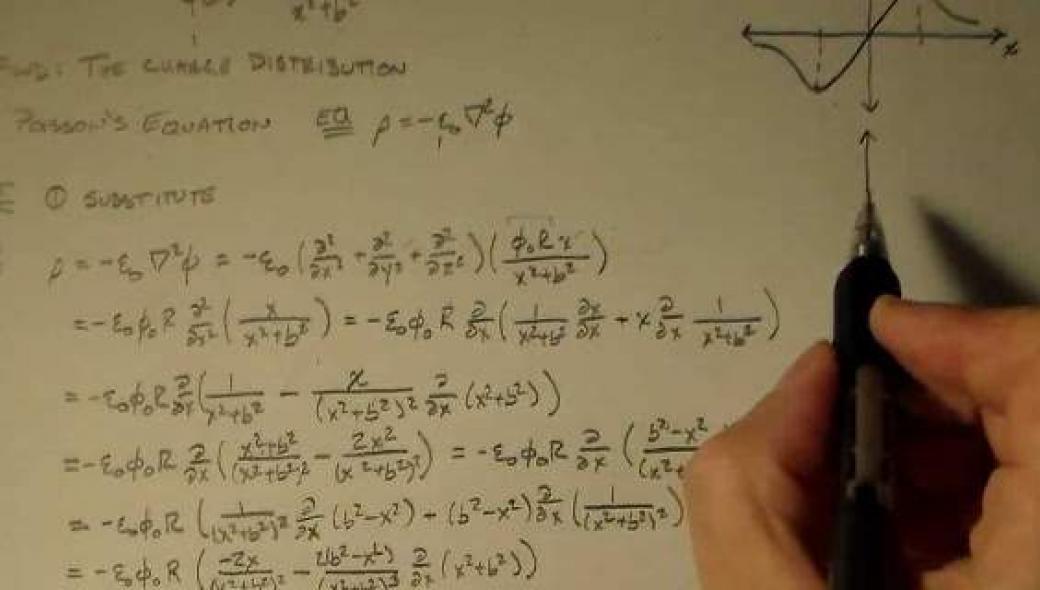 x²+b²
FIND: THE CHARGE DISTRIBUTION
POISSON'S EQUATION EQ ρ = -ε₀ ∇²φ
① SUBSTITUTE
x
ρ = -ε₀ ∇²φ = -ε₀ (∂²/∂x² + ∂²/∂y² + ∂²/∂z²)(φ₀Rx/(x²+b²))
= -ε₀φ₀R ∂²/∂x² (x/(x²+b²)) = -ε₀φ₀R ∂/∂x (1/(x²+b²) ∂x/∂x + x ∂/∂x 1/(x²+b²))
= -ε₀φ₀R ∂/∂x (1/(x²+b²) - x/(x²+b²)² ∂/∂x (x²+b²))
= -ε₀φ₀R ∂/∂x ((x²+b²)/(x²+b²)² - 2x²/(x²+b²)²) = -ε₀φ₀R ∂/∂x (b²-x²/(x²+
= -ε₀φ₀R (1/(x²+b²)² ∂/∂x (b²-x²) + (b²-x²) ∂/∂x (1/(x²+b²)²)
= -ε₀φ₀R (-2x/(x²+b²)² - 2(b²-x²)/(x²+b²)³ ∂/∂x (x²+b²))